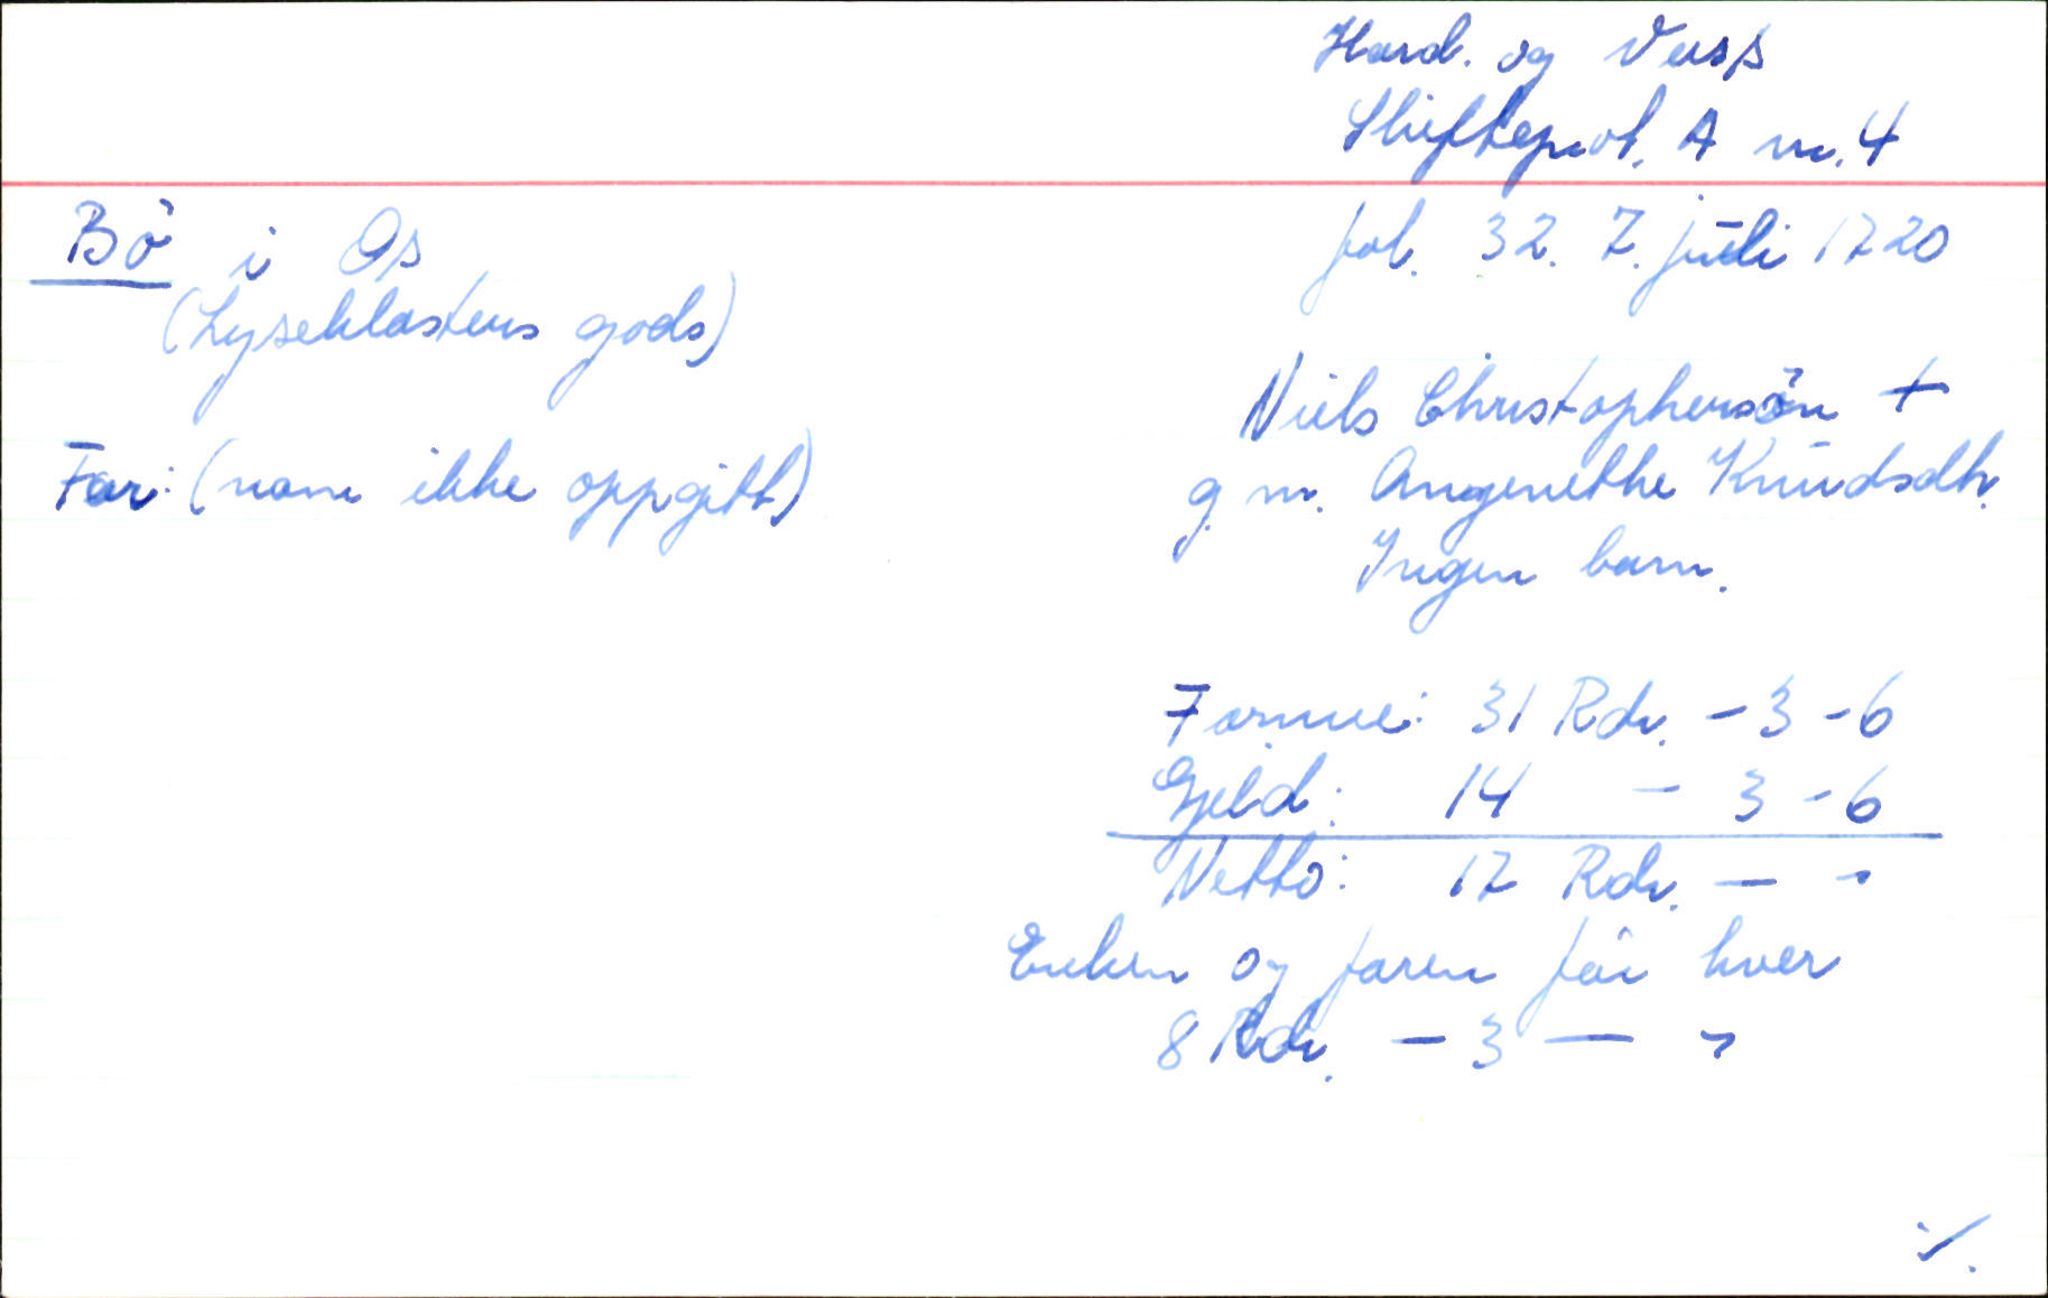 Hard. og Voss
Skifteprot. A nr. 4
fol. 32. 7. juli 1720
Bö i Os
(Lyseklosters gods)
Far: (navn ikke oppgitt)
Niels Christophersön +
g. m. Angenethe Knudsdtr.
Ingen barn.
Formue: 31 Rdr. - 3 - 6
Gjeld: 14 - 3 - 6
Netto: 17 Rdr. — -
Enken og faren får hver
8 Rdr. - 3 — -
./.